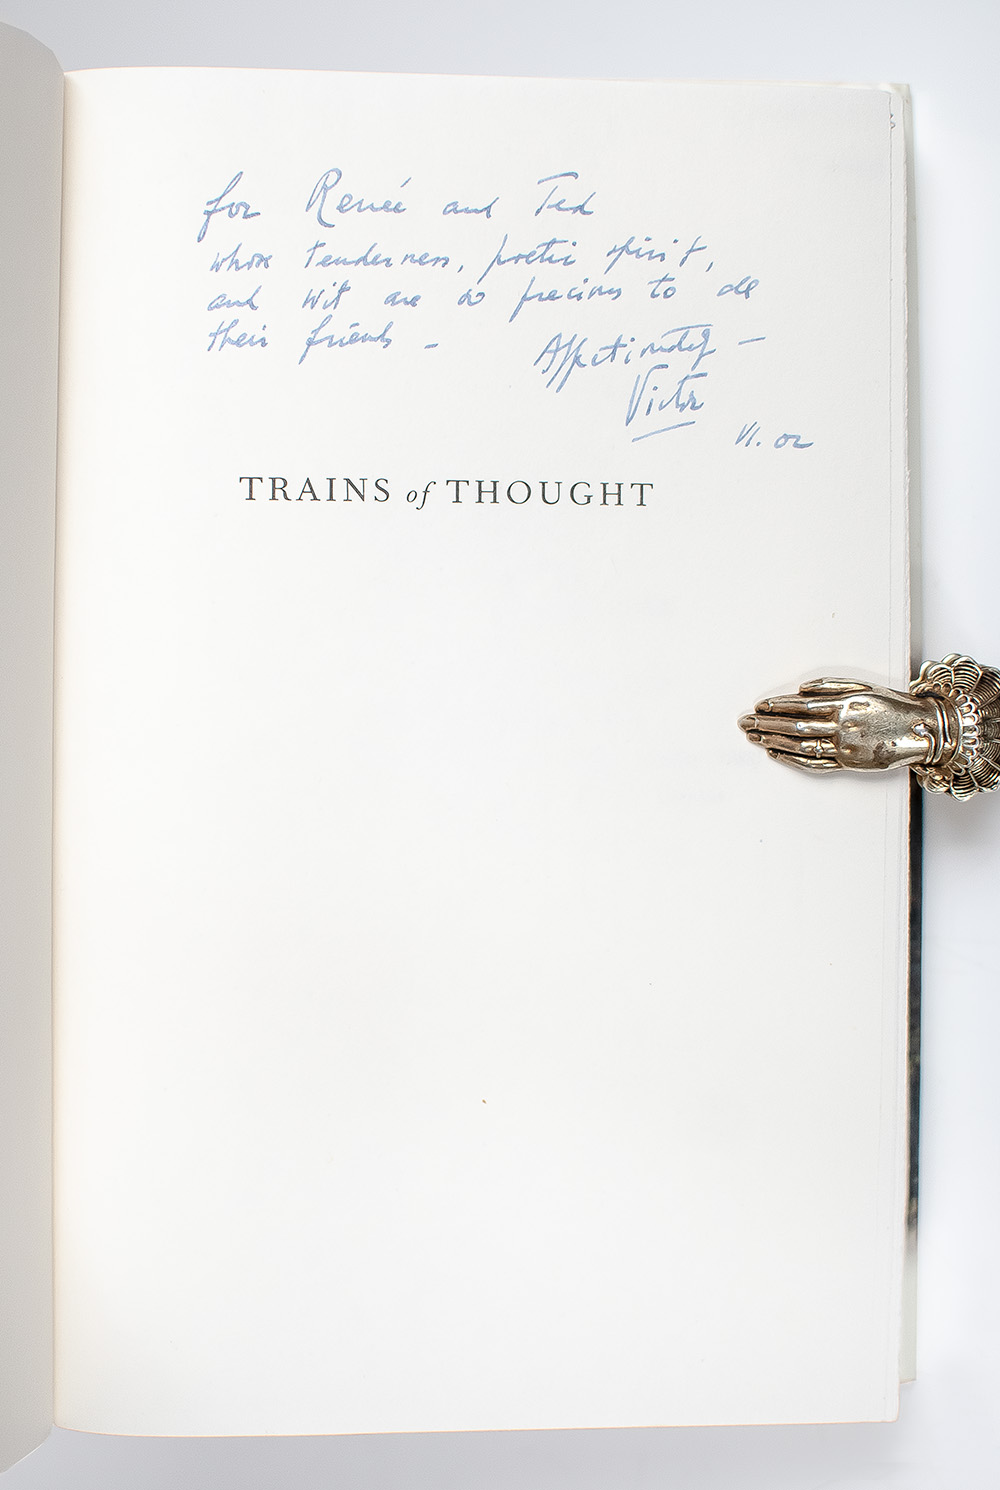 for Renée and Ted
whose tenderness, poetic spirit,
and wit are so precious to all
their friends –
Affectionately –
Victor
VI. 02
TRAINS of THOUGHT